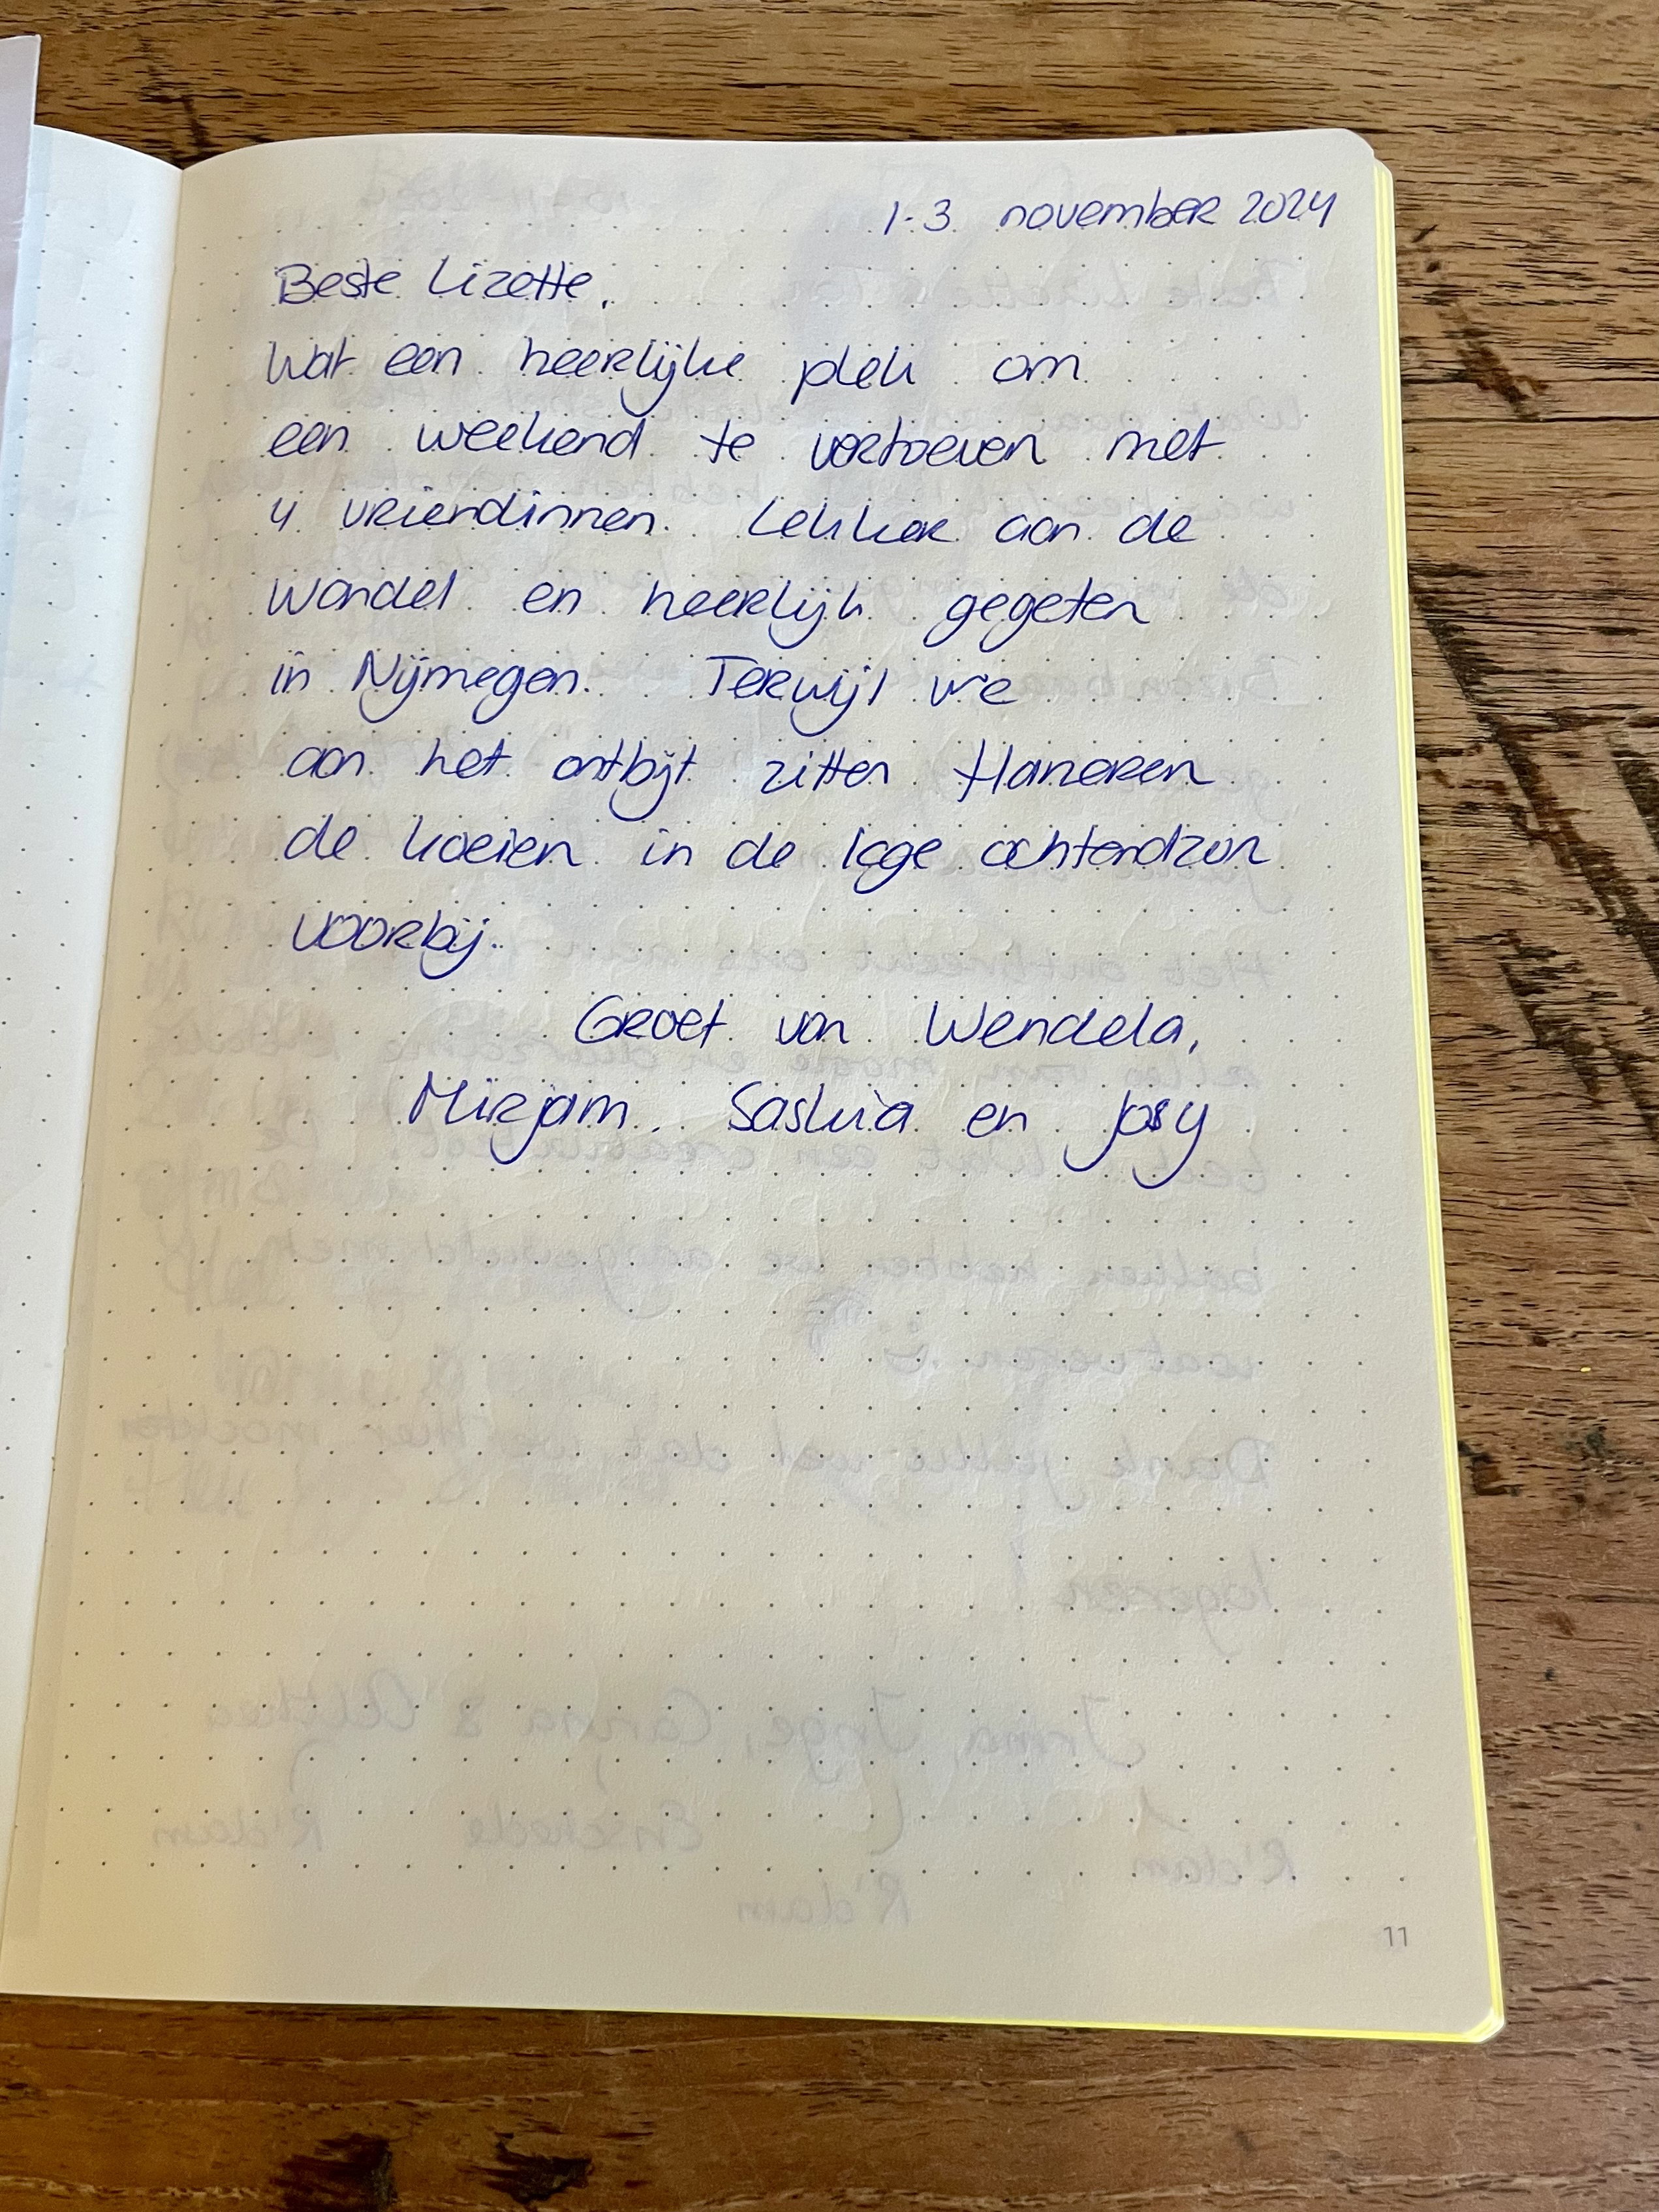 1-3 november 2024
Beste Lizette,
Wat een heerlijke plek om
een weekend te vertoeven met
4 vriendinnen. Lekker aan de
wandel en heerlijk gegeten
in Nijmegen. Terwijl we
aan het ontbijt zitten flaneren
de koeien in de lage ochtendzon
voorbij.
Groet van Wendela,
Mirjam, Saskia en Josy
11